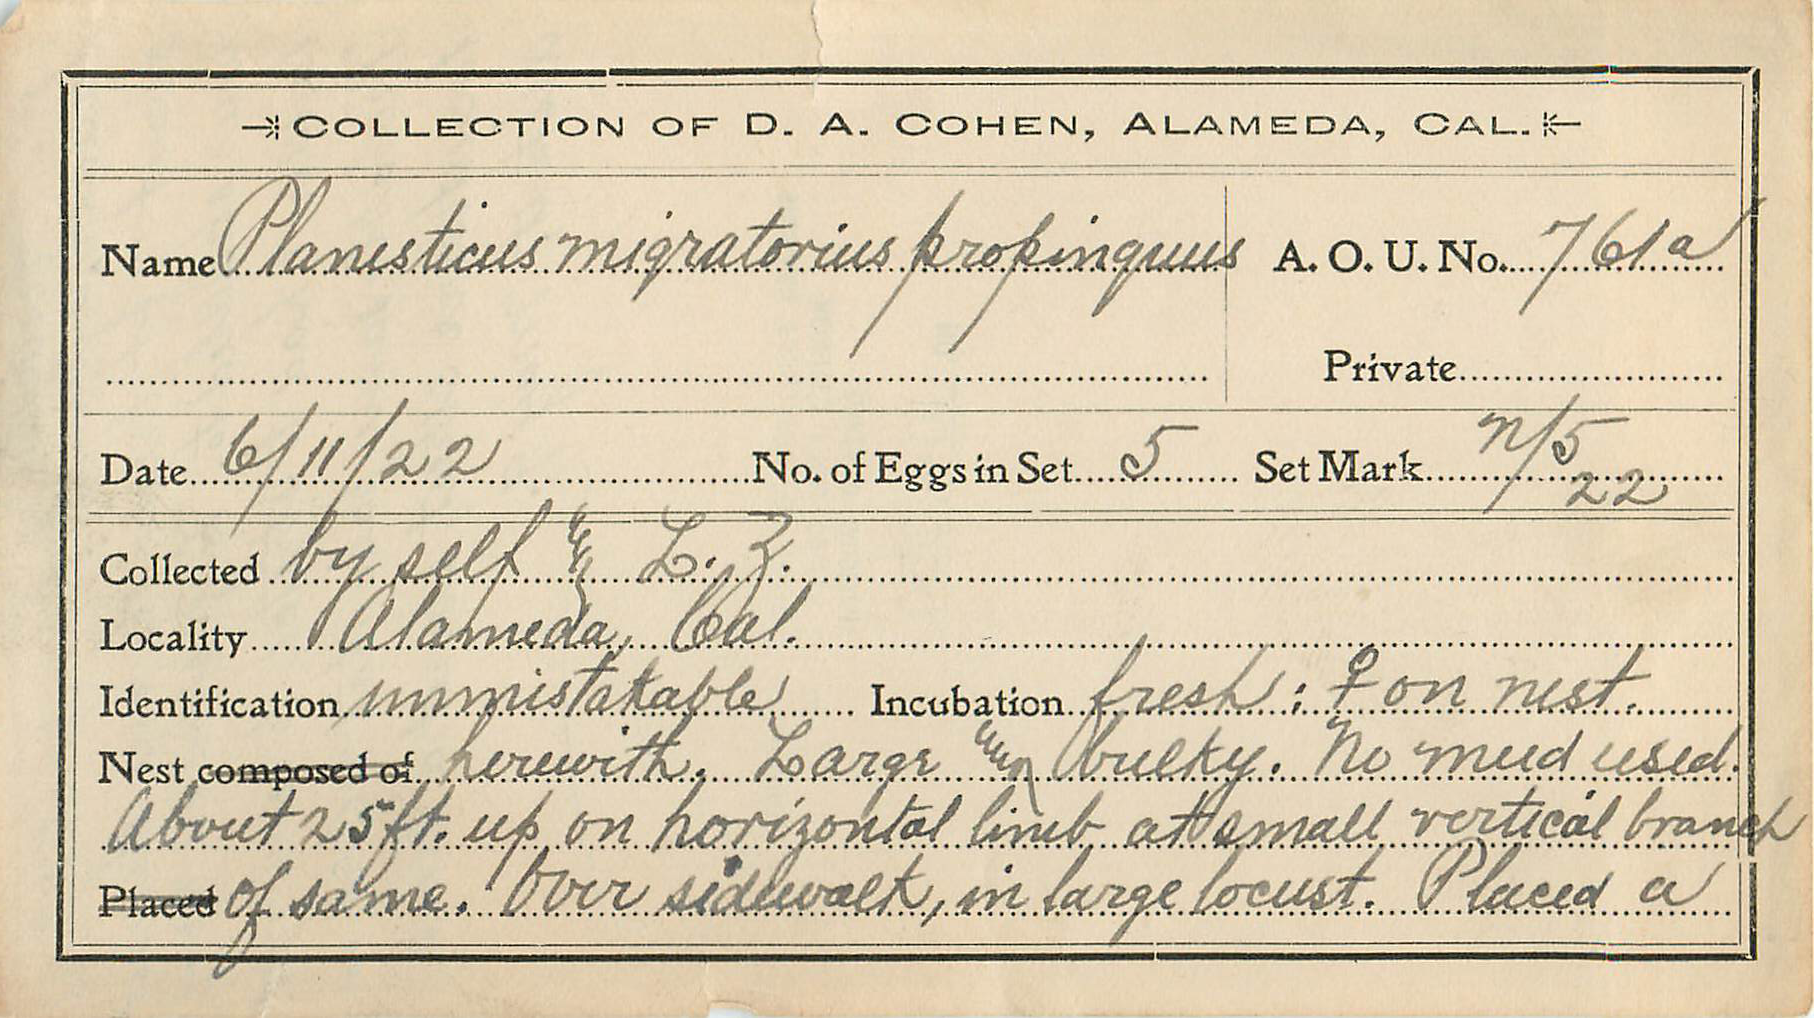 COLLECTION OF D. A. COHEN, ALAMEDA, CAL.
Name Planesticus migratorius propinquus A. O. U. No. 761a
Private
Date 6/11/22 No. of Eggs in Set 5 Set Mark n/5 22
Collected by self & L. Z.
Locality Alameda, Cal.
Identification unmistakable Incubation fresh; ♀ on nest.
Nest composed of herewith. Large & bulky. No mud used.
About 25 ft. up on horizontal limb at small vertical branch
Placed of same. Over sidewalk, in large locust. Placed a